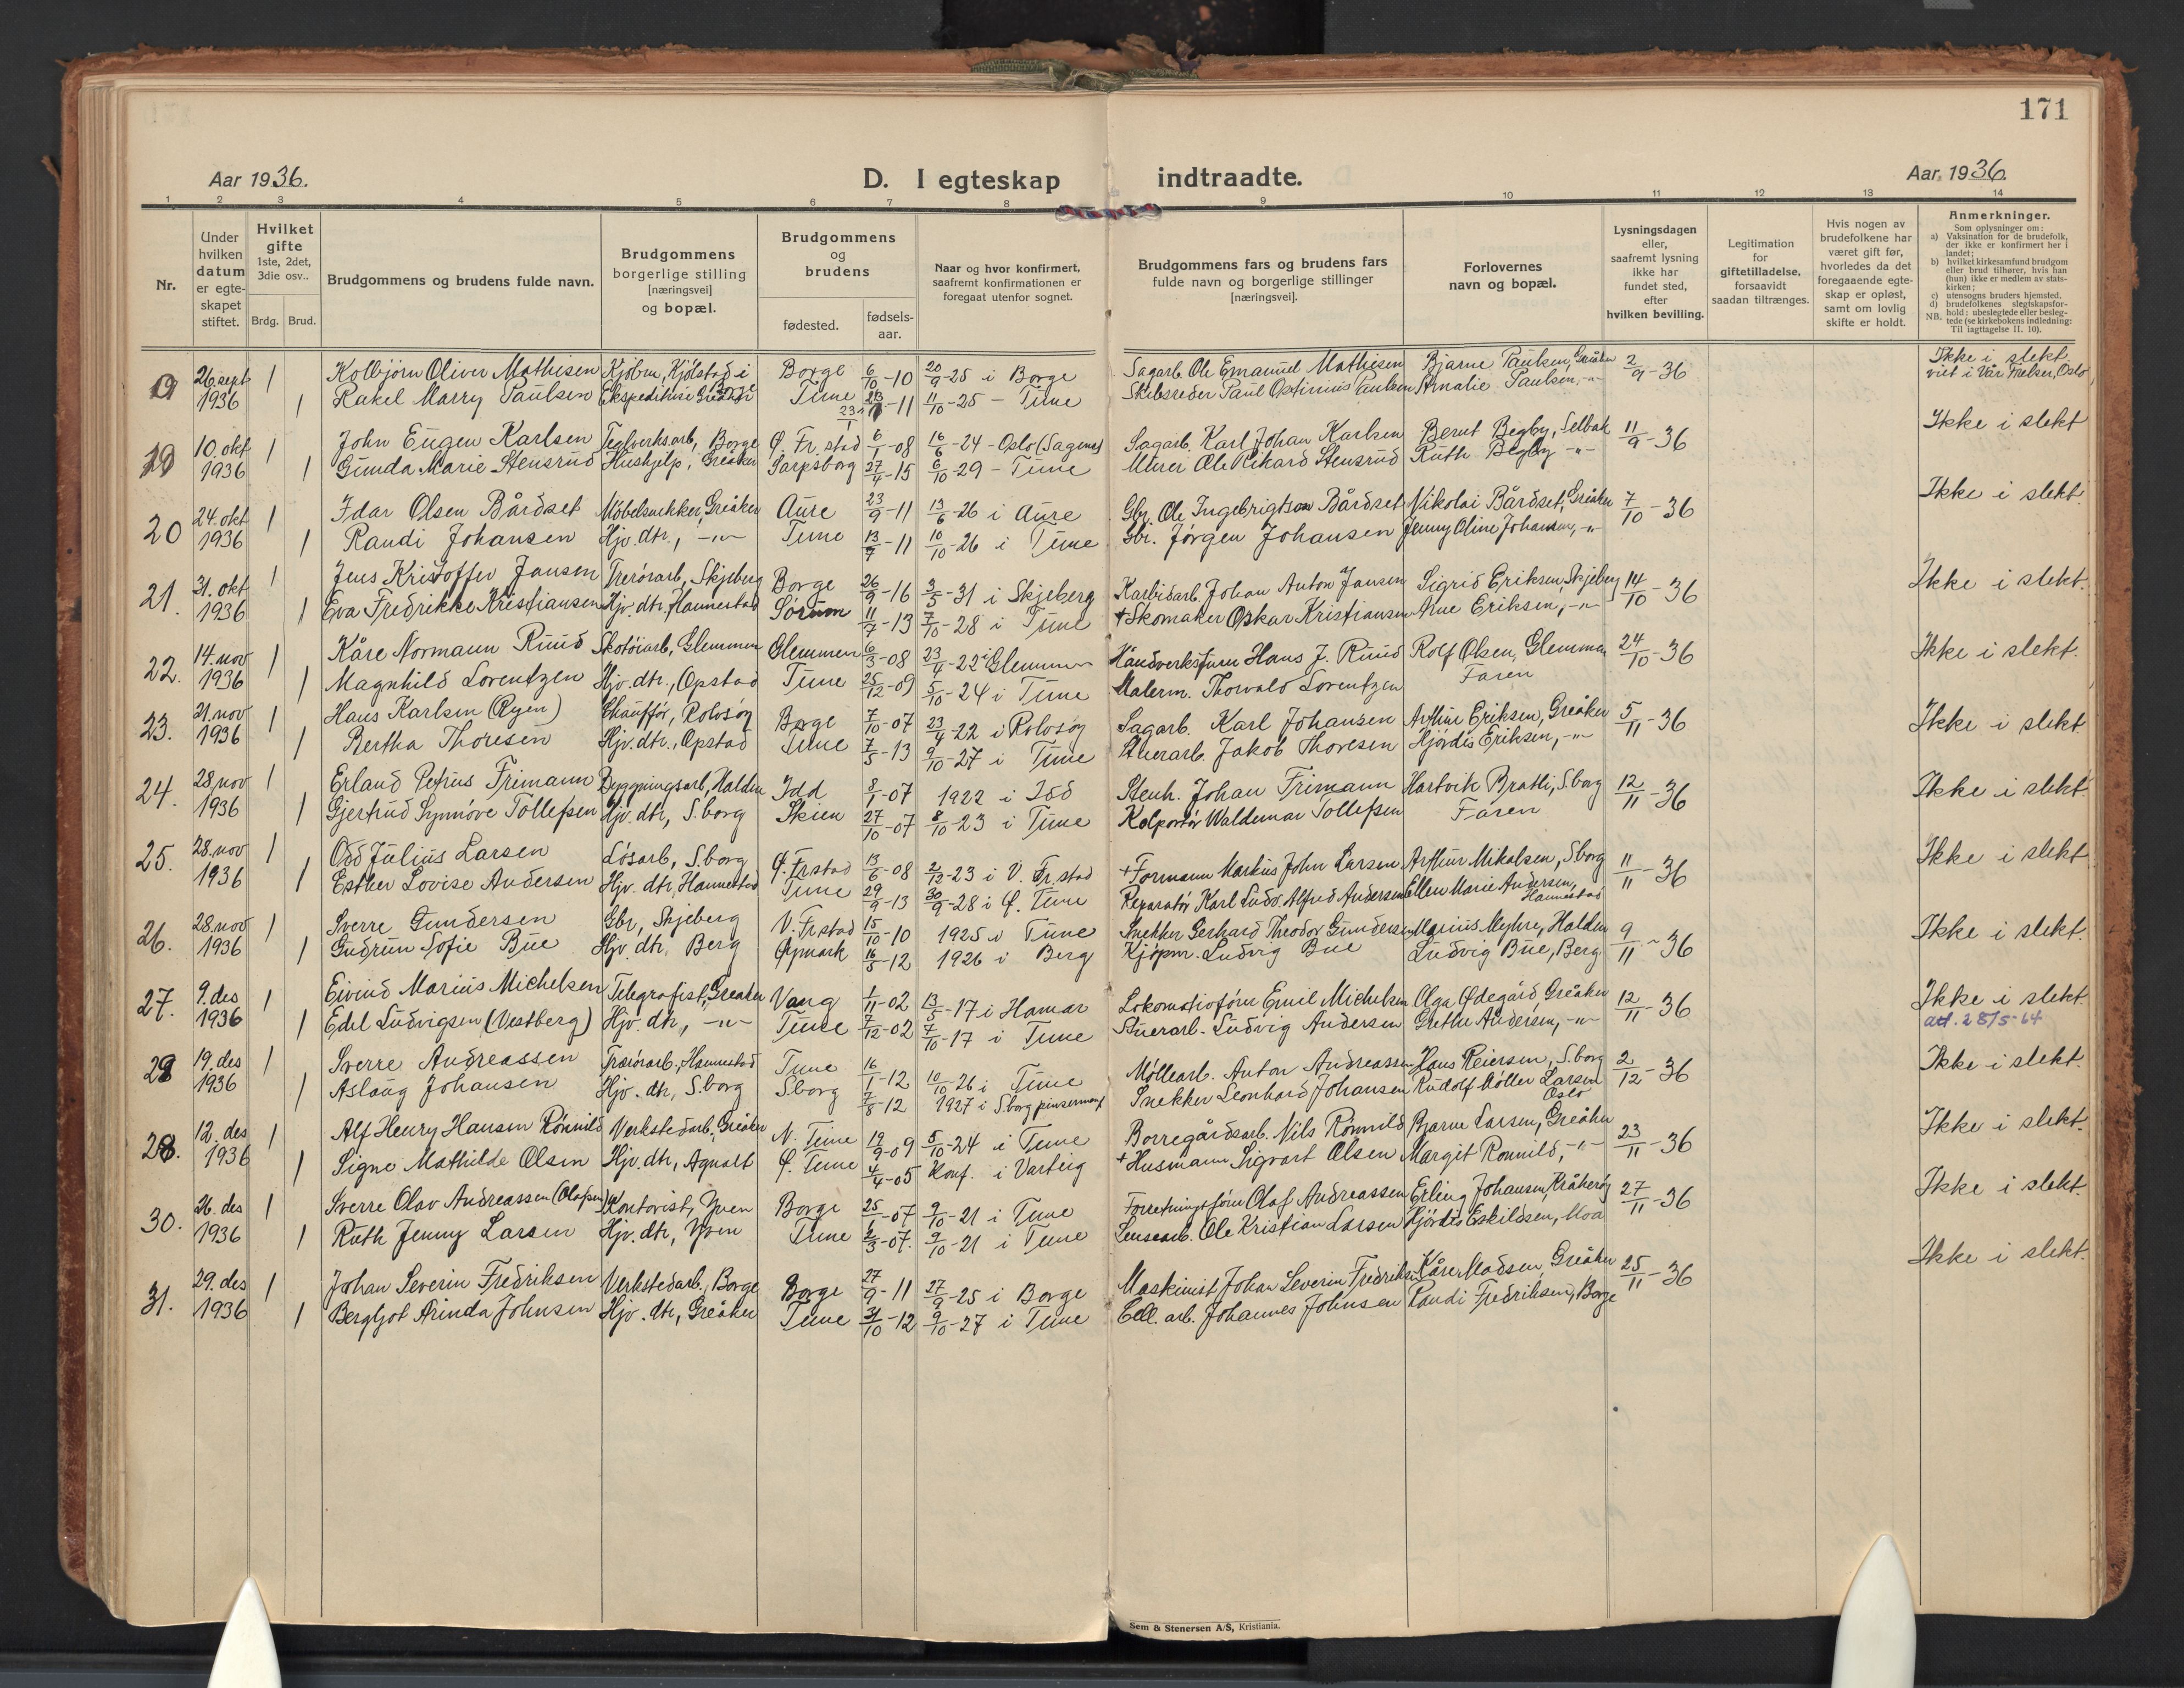 171
Aar 1936.
D. I egteskap indtraadte.
Aar 1936.
1 2 3 4 5 6 7 8 9 10 11 12 13 14
Nr.
Under hvilken datum er egte-skapet stiftet.
Hvilket gifte 1ste, 2det, 3die osv..
Brdg. Brud.
Brudgommens og brudens fulde navn.
Brudgommens borgerlige stilling [næringsvei] og bopæl.
Brudgommens og brudens
fødested.
fødsels-aar.
Naar og hvor konfirmert, saafremt konfirmationen er foregaat utenfor sognet.
Brudgommens fars og brudens fars fulde navn og borgerlige stillinger [næringsvei].
Forlovernes navn og bopæl.
Lysningsdagen eller, saafremt lysning ikke har fundet sted, efter hvilken bevilling.
Legitimation for giftetilladelse, forsaavidt saadan tiltrænges.
Hvis nogen av brudefolkene har været gift før, hvorledes da det foregaaende egte-skap er opløst, samt om lovlig skifte er holdt.
Anmerkninger.
Som oplysninger om:
a) Vaksination for de brudefolk, der ikke er konfirmert her i landet;
b) hvilket kirkesamfund brudgom eller brud tilhører, hvis han (hun) ikke er medlem av stats-kirken;
c) utensogns bruders hjemsted.
d) brudefolkenes slegtskapsfor-hold: ubeslegtede eller besleg-tede (se kirkebokens indledning: Til iagttagelse II. 10).
NB.
26. sept 1 Kolbjørn Oliver Mathisen Kjøbm, Kjølstad i Borge Borge 6/10-10 20/9-25 i Borge Sagarb. Ole Emanuel Mathisen Bjarne Paulsen, Greåker 2/9-36 Ikke i slekt. viet i Vår Frelser, Oslo
1936 1 Rakel Marry Paulsen Ekspeditrise Greåker Tune 23/1-11 11/10-25 - Tune Skibsreder Paul Ostinius Paulsen Amalie Paulsen, -"-
19 10. okt 1 John Eugen Karlsen Teglverksarb, Borge Ø. Fr.stad 6/1-08 16/6-24 - Oslo (Sagene) Sagarb. Karl Johan Karlsen Bernt Begby, Selbak 11/9-36 Ikke i slekt
1936 1 Gunda Marie Stensrud Hushjelp, Greåker Sarpsborg 27/4-15 6/10-29 - Tune Murer Ole Rikard Stensrud Ruth Begby -"-
20 24. okt 1 Idar Olsen Bårdset Møbelsnekker, Greåker Aure 23/9-11 13/6-26 i Aure Gbr. Ole Ingebrigtson Bårdset Nikolai Bårdset, Greåker 7/10-36 Ikke i slekt
1936 1 Randi Johansen Hjv. dtr., -"- Tune 13/7-11 10/10-26 i Tune Gbr. Jørgen Johansen Jenny Oline Johansen, -"-
21. 31. okt 1 Jens Kristoffer Jansen Trerørarb, Skjeberg Borge 26/9-16 3/5-31 i Skjeberg Karbidarb. Johan Anton Jansen Sigrid Eriksen, Skjeberg 14/10-36 Ikke i slekt.
1936 1 Eva Fredrikke Kristiansen Hjv. dtr, Hannestad Sørum 11/7-13 7/10-28 i Tune + Skomaker Oskar Kristiansen Arne Eriksen, -"-
22. 14. nov 1 Kåre Normann Ruud Skotøiarb, Glemmen Glemmen 6/3-08 23/4-22 i Glemmen Håndverksfurm Hans J. Ruud Rolf Olsen, Glemmen 24/10-36 Ikke i slekt.
1936 1 Magnhild Lorentzen Hjv. dtr., Opstad Tune 25/12-09 5/10-24 i Tune Malerm. Thorvald Lorentzen Faren
23. 21. nov 1 Hans Karlsen (Ryen) Chauffør, Rolvsøy Borge 7/10-07 23/4-22 i Rolvsøy Sagarb. Karl Johansen Arthur Eriksen, Greåker 5/11-36 Ikke i slekt.
1936 1 Bertha Thoresen Hjv. dtr., Opstad Tune 7/5-13 9/10-27 i Tune Stuerarb. Jakob Thoresen Hjørdis Eriksen, -"-
24. 28. nov 1 Erland Petrus Frimann Byggningsarb, Halden Idd 8/1-07 1922 i Idd Stenh. Johan Frimann Hartvik Bratli, S.borg 12/11-36 Ikke i slekt.
1936 1 Gjertrud Synnøve Tollefsen Hjv. dtr, S.borg Skien 27/10-07 8/10-23 i Tune Kolportør Waldemar Tollefsen Faren
25. 28. nov 1 Odd Julius Larsen Løsarb, S.borg Ø. Fr.stad 13/6-08 2/12-23 i V. Fr.stad + Formann Markus John Larsen Arthur Mikalsen, S.borg 11/11-36 Ikke i slekt
1936 1 Esther Lovise Andersen Hjv. dtr, Hannestad Tune 29/9-13 30/9-28 i Ø. Tune Reparatør Karl Ludv. Alfred Andersen Ellen Marie Andersen, Hannestad
26. 28. nov 1 Sverre Gundersen Gbr, Skjeberg V. Fr.stad 15/10-10 1925 i Tune Snekker Gerhard Theodor Gundersen Marius Myhre, Halden 9/11-36 Ikke i slekt.
1936 1 Gudrun Sofie Bue Hjv. dtr. Berg Øymark 16/5-12 1926 i Berg Kjøpm. Ludvig Bue Ludvig Bue, Berg.
27. 9. des 1 Eivind Marius Michelsen Telegrafist, Greåker Vang 1/11-02 13/5-17 i Hamar Lokomotivfører Emil Michelsen Olga Ødegård Greåker 12/11-36 Ikke i slekt.
1936 1 Edel Ludvigsen (Vestberg) Hjv. dtr, -"- Tune 7/12-02 7/10-17 i Tune Stuerarb. Ludvig Andersen Grethe Andersen, -"- att. 28/5-64
29 19. des 1 Sverre Andreassen Trærørarb. Hannestad Tune 16/1-12 10/10-26 i Tune Møllearb. Anton Andreassen Hans Reiersen, S.borg 2/12-36 Ikke i slekt.
1936 1 Aslaug Johansen Hjv. dtr, S.borg S.borg 7/8-12 1927 i S.borg pinsemen. Snekker Leonhard Johansen Rudolf Møller Larsen Oslo
28. 12. des 1 Alf Henry Hansen Rønnild Verkstedarb, Greåker N. Tune 12/9-09 5/10-24 i Tune Borregårdsarb. Nils Rønnild Bjarne Larsen, Greåker 23/11-36 Ikke i slekt.
1936 1 Signe Mathilde Olsen Hjv. dtr, Agnalt Ø. Tune 4/4-05 Konf. i Varteig + Husmann Sigvart Olsen Margit Rønnild, -"-
30. 26. des 1 Sverre Olav Andreassen (Olafsen) Kontorist, Yven Borge 25/-07 9/10-21 i Tune Forretningsfører Olaf Andreassen Erling Johansen, Kråkerøy 27/11-36 Ikke i slekt.
1936 1 Ruth Jenny Larsen Hjv. dtr, Yven Tune 6/3-07. 9/10-21 i Tune Lensearb. Ole Kristian Larsen Hjørdis Eskildsen, Moa
31. 29. des 1 Johan Severin Fredriksen Verkstedarb., Borge Borge 27/9-11 27/9-25 i Borge Maskinist Johan Severin Fredriksen Kåre Madsen, Greåker 25/11-36 Ikke i slekt.
1936 1 Bergljot Arinda Johnsen Hjv. dtr, Greåker Tune 31/10-12 9/10-27 i Tune Cell. arb. Johannes Johnsen Randi Fredriksen, Borge
Sem & Stenersen A/S, Kristiania.